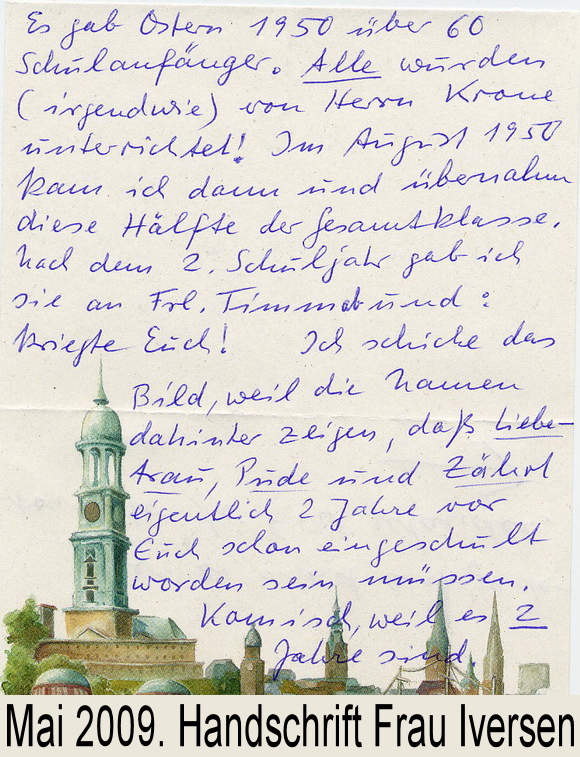 Es gab Ostern 1950 über 60
Schulanfänger. Alle wurden
(irgendwie) von Herrn Krone
unterrichtet! Im August 1950
kam ich dann und übernahm
diese Hälfte der Gesamtklasse.
Nach dem 2. Schuljahr gab ich
sie an Frl. Timm ab und :
kriegte Euch! Ich schicke das
Bild, weil die Namen
dahinter zeigen, daß Liebe-
trau, Pude und Zährl
eigentlich 2 Jahre vor
Euch schon eingeschult
worden sein müssen.
Komisch, weil es 2
Jahre sind
Mai 2009. Handschrift Frau Iversen